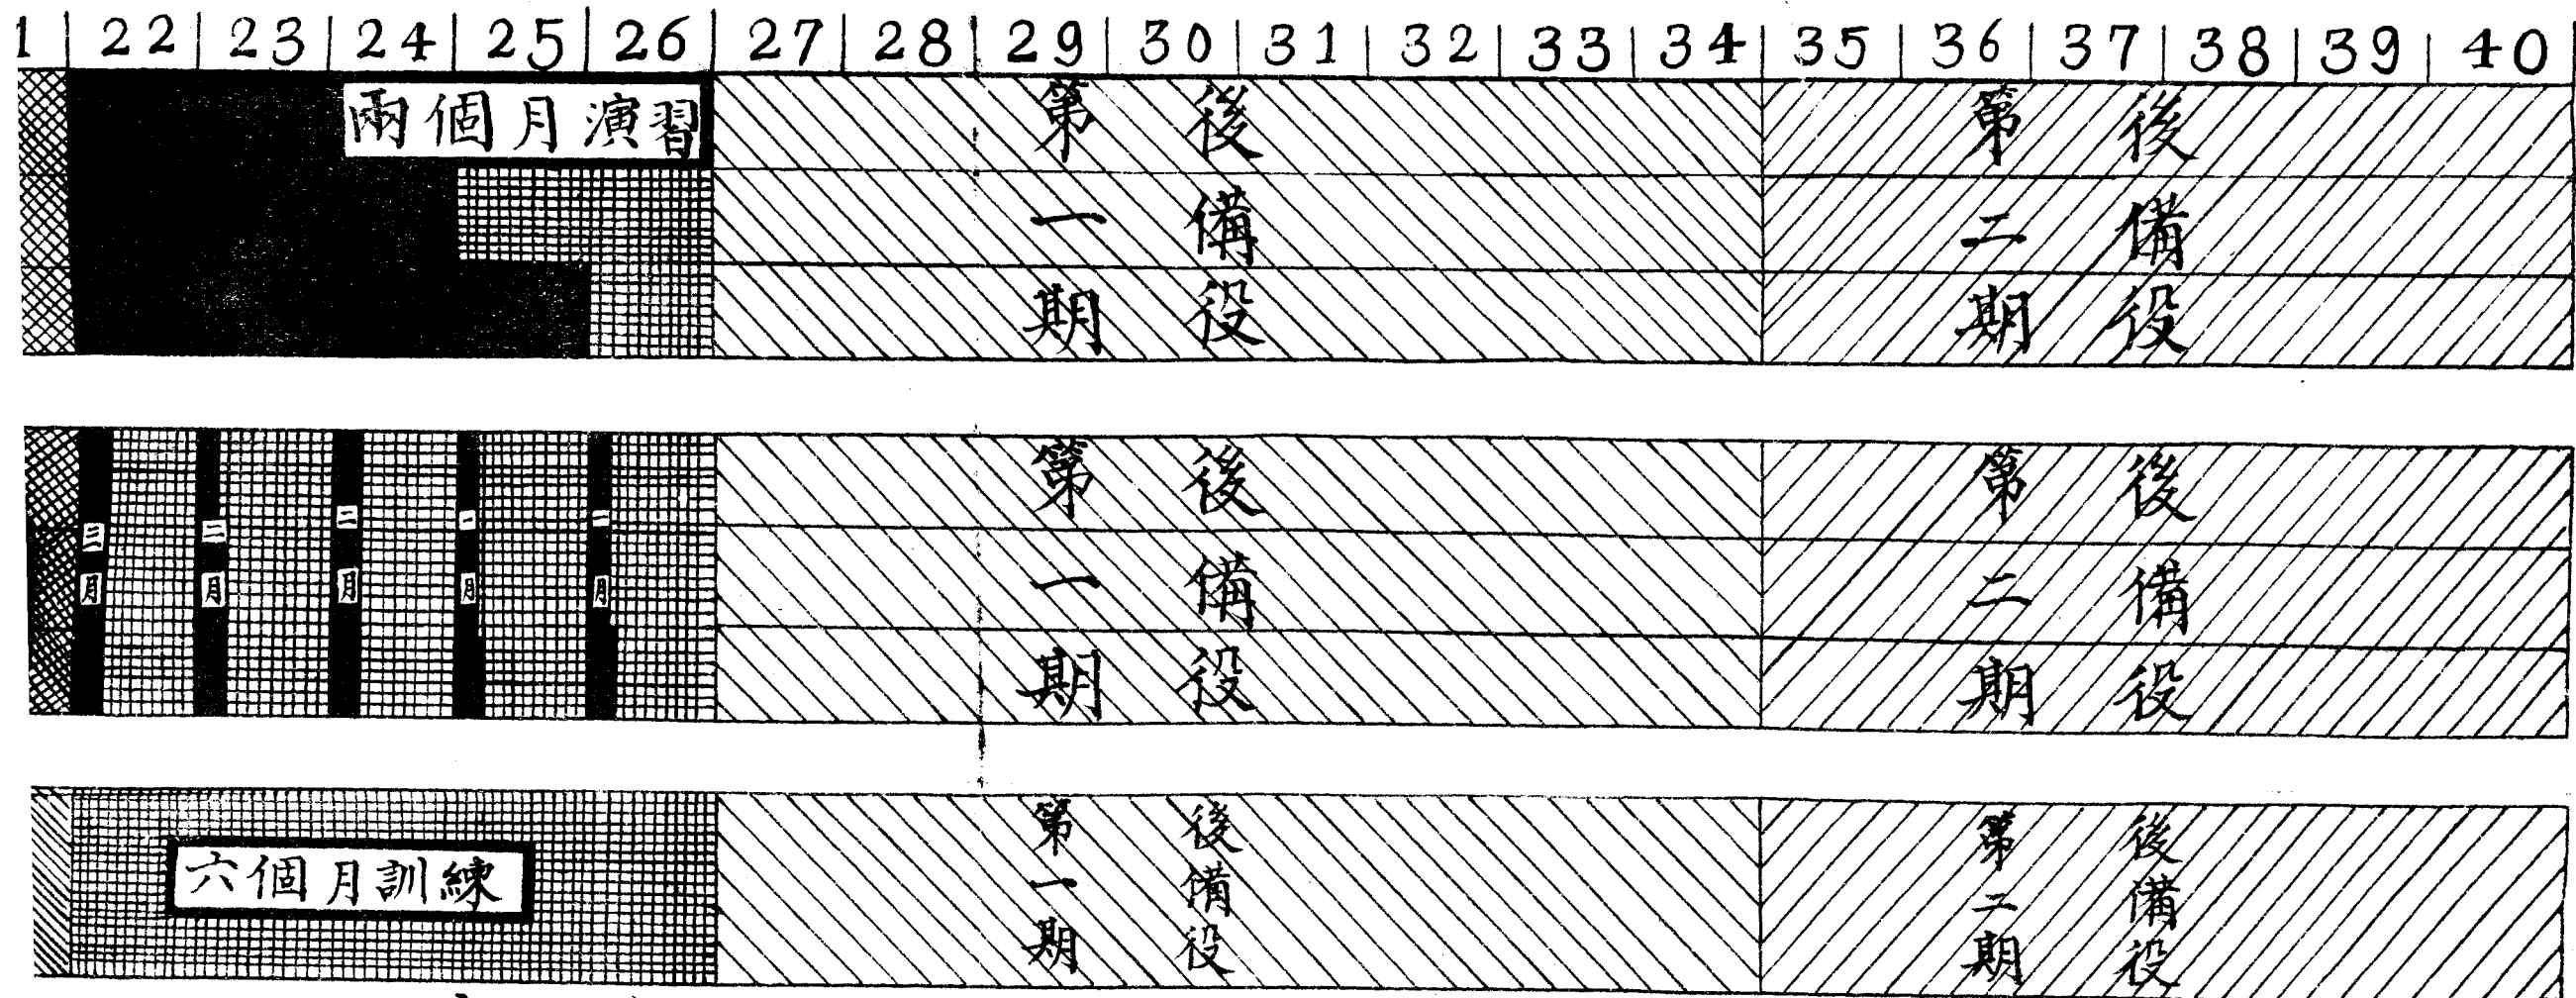 1 22 23 24 25 26 27 28 29 30 31 32 33 34 35 36 37 38 39 40
兩個月演習
後備役
第一期
後備役
第二期
三月
二月
二月
一月
一月
後備役
第一期
後備役
第二期
六個月訓練
後備役
第一期
後備役
第二期